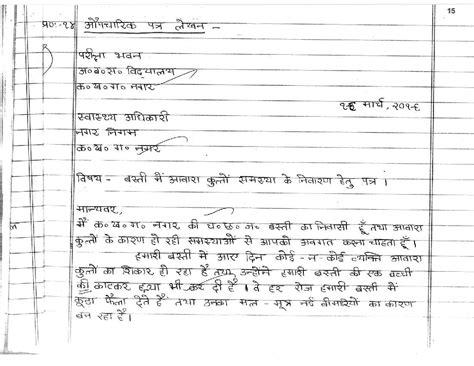 15
प्र०-१४ औपचारिक पत्र लेखन -
परीक्षा भवन
अ०ब०स० विद्यालय
क०ख०ग० नगर
मार्च, २०१८
स्वास्थ्य अधिकारी
नगर निगम
क०ख०ग० नगर
विषय - बस्ती में आवारा कुत्तों समस्या के निवारण हेतु पत्र ।
मान्यवर,
मैं क०ख०ग० नगर की च०छ०ज० बस्ती का निवासी हूँ तथा आवारा
कुत्तों के कारण हो रही समस्याओं से आपको अवगत करना चाहता हूँ।
हमारी बस्ती में आए दिन कोई-न-कोई व्यक्ति आवारा
कुत्तों का शिकार हो रहा है तथा उन्होंने हमारी बस्ती की एक बच्ची
की काटकर हत्या भी कर दी है । वे हर रोज हमारी बस्ती में
कूड़ा फैला देते हैं तथा उनका मल-मूत्र नई बीमारियों का कारण
बन रहा है।